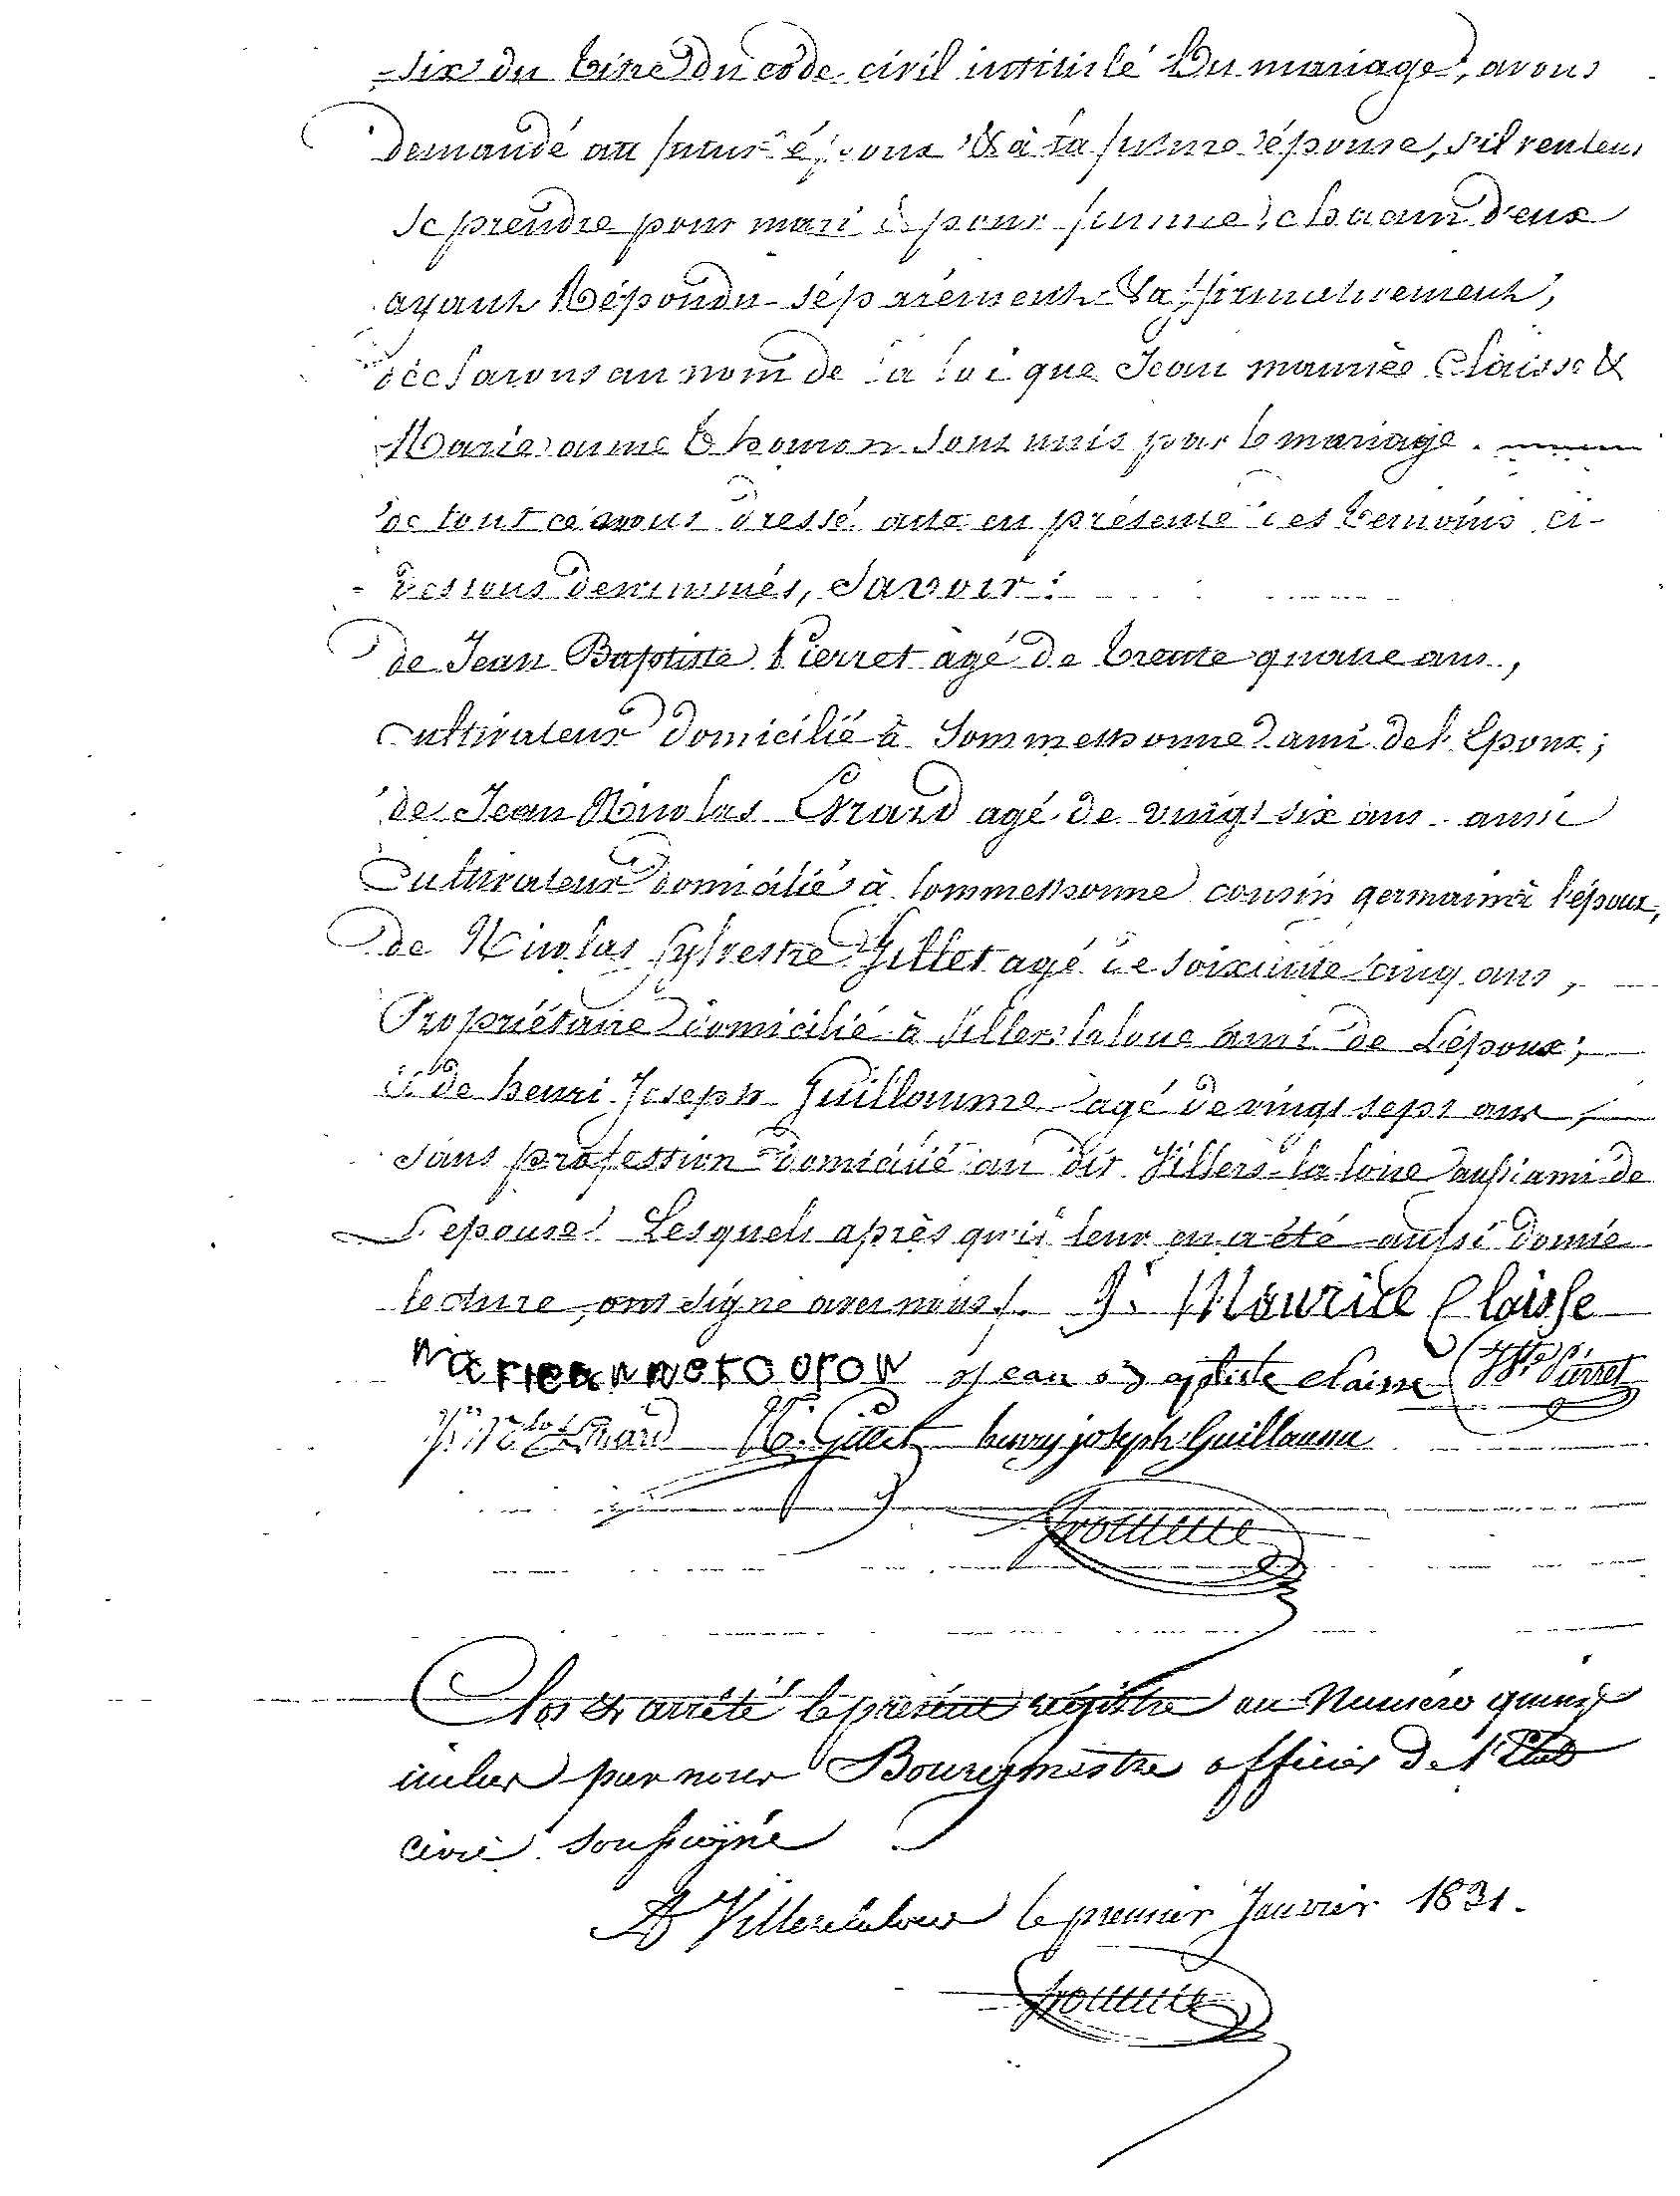 -six du titre du code civil intitulé Du mariage, avons
Demandé au futur époux & à la future épouse, s'il veulent
se prendre pour mari & pour femme, chacun d'eux
ayant Répondu séparément & affirmativement,
déclarons au nom de la loi que Jean maurice Claisse &
Marie anne Thouron sont unis par le mariage.
de tout ce avons dressé acte en présence des témoins ci-
dessous denommés, Savoir :
de Jean Baptiste Pierret agé de trente quatre ans,
Cultivateur domicilié à Sommethonne ami de l'Epoux ;
de Jean Nicolas Evrard agé de vingt six ans aussi
Cultivateur domicilié à Sommethonne cousin germain à l'époux,
de Nicolas Sylvestre Gillet agé de soixante cinq ans,
Propriétaire domicilié à Villers laloue ami de L'époux ;
& de henri Joseph Guillaume agé de vingt sept ans,
sans profession domicilié au dit Villers-la loue aussi ami de
L'epouse. Lesquels après qu'il leur en a été aussi donné
lecture, ont signé avec nous. J. Maurice Claisse
marieanneToorow jean baptiste claisse JBte Pierret
J. Nlas Evrard N. Gillet henry joseph Guillaume
Clos & arrêté le présent régistre au Numéro quinze
inclus par nous Bourgmestre officier de l'Etat
civil soussigné
A Villerslaloue le premier Janvier 1831.